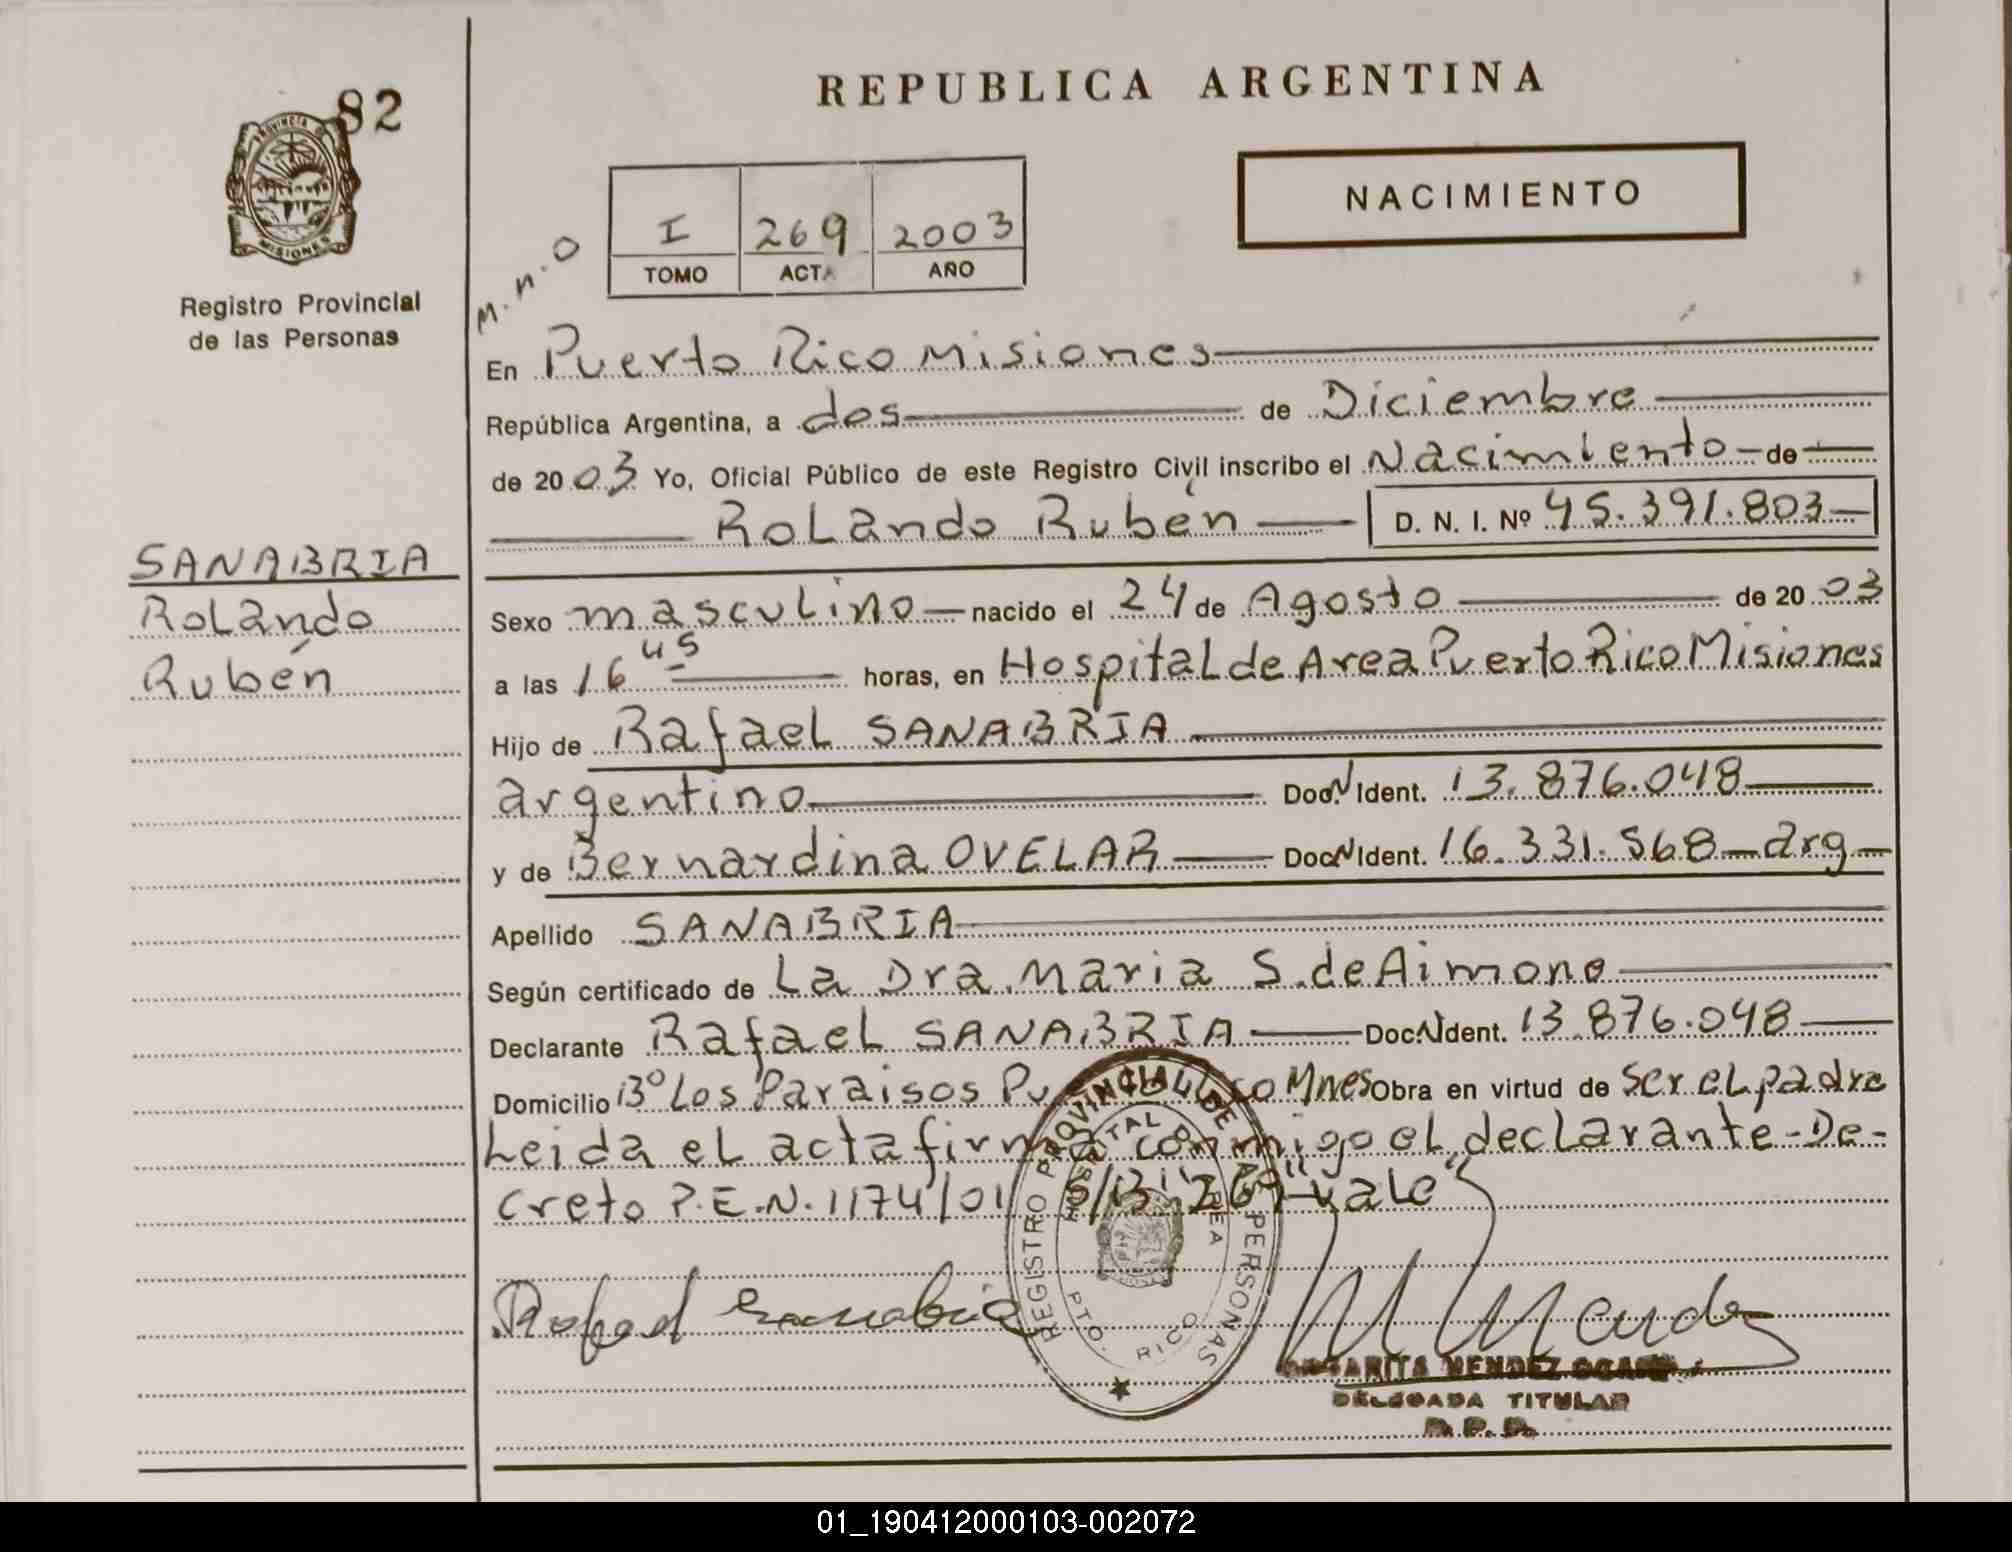 82
PROVINCIA D
MISIONES
Registro Provincial
de las Personas
REPUBLICA ARGENTINA
NACIMIENTO
I 269 2003
TOMO ACTA AÑO
M.n.o
En Puerto Rico Misiones
República Argentina, a dos de Diciembre
de 2003 Yo, Oficial Público de este Registro Civil inscribo el Nacimiento de
Rolando Rubén D. N. I. Nº 45.391.803
SANABRIA
Rolando
Rubén
Sexo masculino nacido el 24 de Agosto de 2003
a las 16 45 horas, en Hospital de Area Puerto Rico Misiones
Hijo de Rafael SANABRIA
argentino Doc.N Ident. 13.876.048
y de Bernardina OVELAR Doc.N Ident. 16.331.568 arg
Apellido SANABRIA
Según certificado de La Dra. Maria S. de Aimone
Declarante Rafael SANABRIA Doc.N Ident. 13.876.048
Domicilio Bº Los Paraisos Mnes Obra en virtud de ser el padre
Leida el acta firma conmigo el declarante-De-
creto P.E.N. 1174/01 S/B "269" vale
Rafael Sanabria
REGISTRO PROVINCIAL DE LAS PERSONAS
HOSPITAL DE AREA
PTO. RICO
M Mendez
MENDEZ
DELEGADA TITULAR
01_190412000103-002072